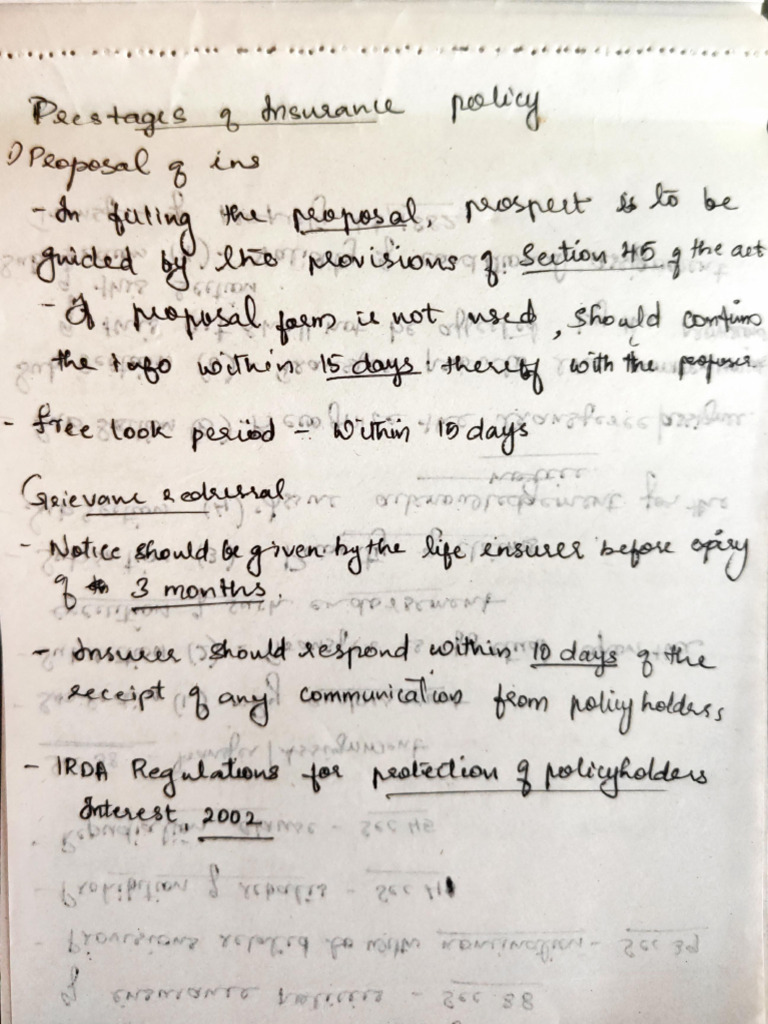 Prestages of Insurance policy
1) Proposal of ins
- In filling the proposal, prospect is to be
guided by the provisions of Section 45 of the act
- If proposal form is not used, should confirm
the info within 15 days thereof with the proposer
- free look period - within 15 days
Grievance redressal
- Notice should be given by the life ensurer before expiry
of 3 months.
- Insurer should respond within 10 days of the
receipt of any communication from policyholders
- IRDA Regulations for protection of policyholders
Interest, 2002